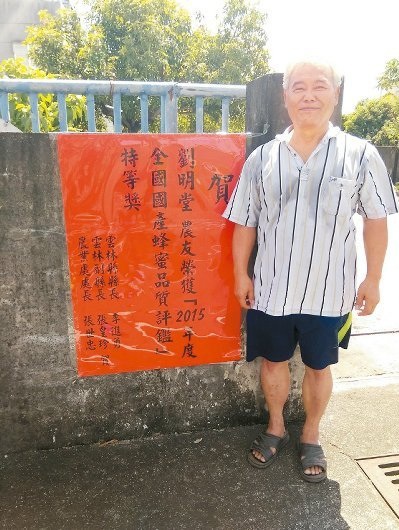 賀
劉明堂 農友榮獲「2015年度
全國國產蜂蜜品質評鑑」
特等獎
雲林縣縣長 李進勇
雲林副縣長 張皇珍 賀
農業處處長 張世忠